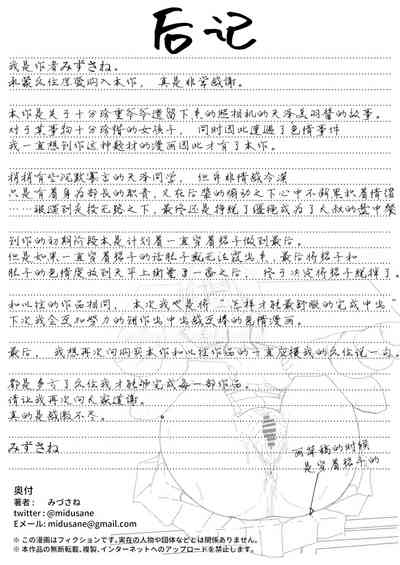 后记
我是作者みずさね。
承蒙各位厚爱购入本作， 真是非常感谢。
本作是关于十分珍重爷爷遗留下来的照相机的天泽
对于某事物十分珍惜的女孩子， 同时因此遭遇了色情事件
我一直想到你这种题材的漫画因此才有了本作。
稍稍有些沉默寡言的天泽同学， 但并非情感冷漠
只是有着身为部长的职责，
到你的初期阶段本是计划着一直穿着裙子做到最后。
但是如果一直穿着裙子的话肚子就无法露出来，最后将裙子和
肚子的色情度放到天平上衡量了一番之后， 终于决定将裙子脱掉了。
和以往的作品相同， 本次我也是将“怎样才能最舒服的完成中出”
下次我会更加努力的创作出中出感更棒的色情漫画。
最后， 我想再次向购买本作和以往作品的
都是多亏了各位我才能够完成每一部作品。
请让我再次向大家道谢。
真的是感激不尽。
みずさね
画草稿的时候
是穿着裙子的
奥付
著者： みづさね
twitter：@midusane
Eメール：midusane@gmail.com
※この漫画はフィクションです。実在の人物や団体などとは関係ありません。
※本作品の無断転載、複製、インターネットへのアップロードを禁止します。